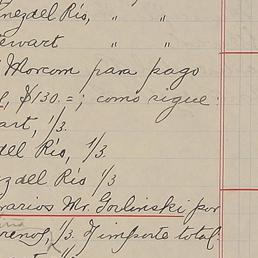 nezdel Río, " "
ewart " "
Morcom para pago
$130.=; como sigue:
art, 1/3.
del Río, 1/3.
ezdel Río 1/3
rarios Mr. Gorlinski por
renos, 1/3. Y importe total